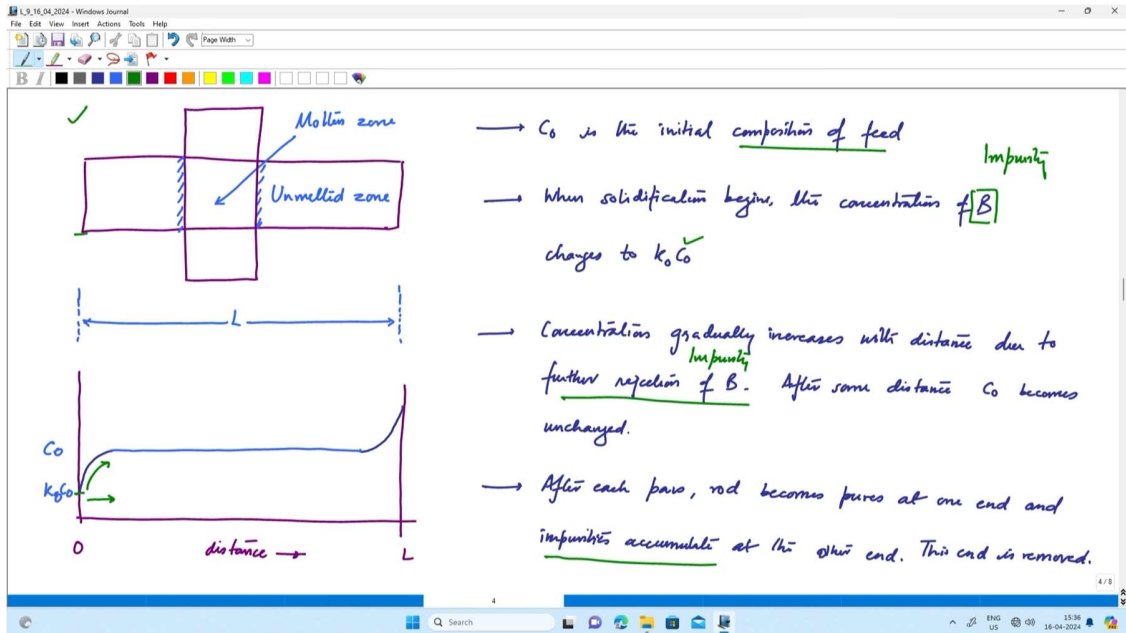 L_9_16_04_2024 - Windows Journal
File Edit View Insert Actions Tools Help
Page Width
B I
Molten zone
Unmelted zone
L
Co
KoCo
0
distance
L
Co is the initial composition of feed
Impurity
When solidification begins, the concentration of B
changes to koCo
Concentration gradually increases with distance due to
Impurity
further rejection of B. After some distance Co becomes
unchanged.
After each pass, rod becomes purer at one end and
impurities accumulate at the other end. This end is removed.
4 / 8
4
Search
ENG
US
15:36
16-04-2024